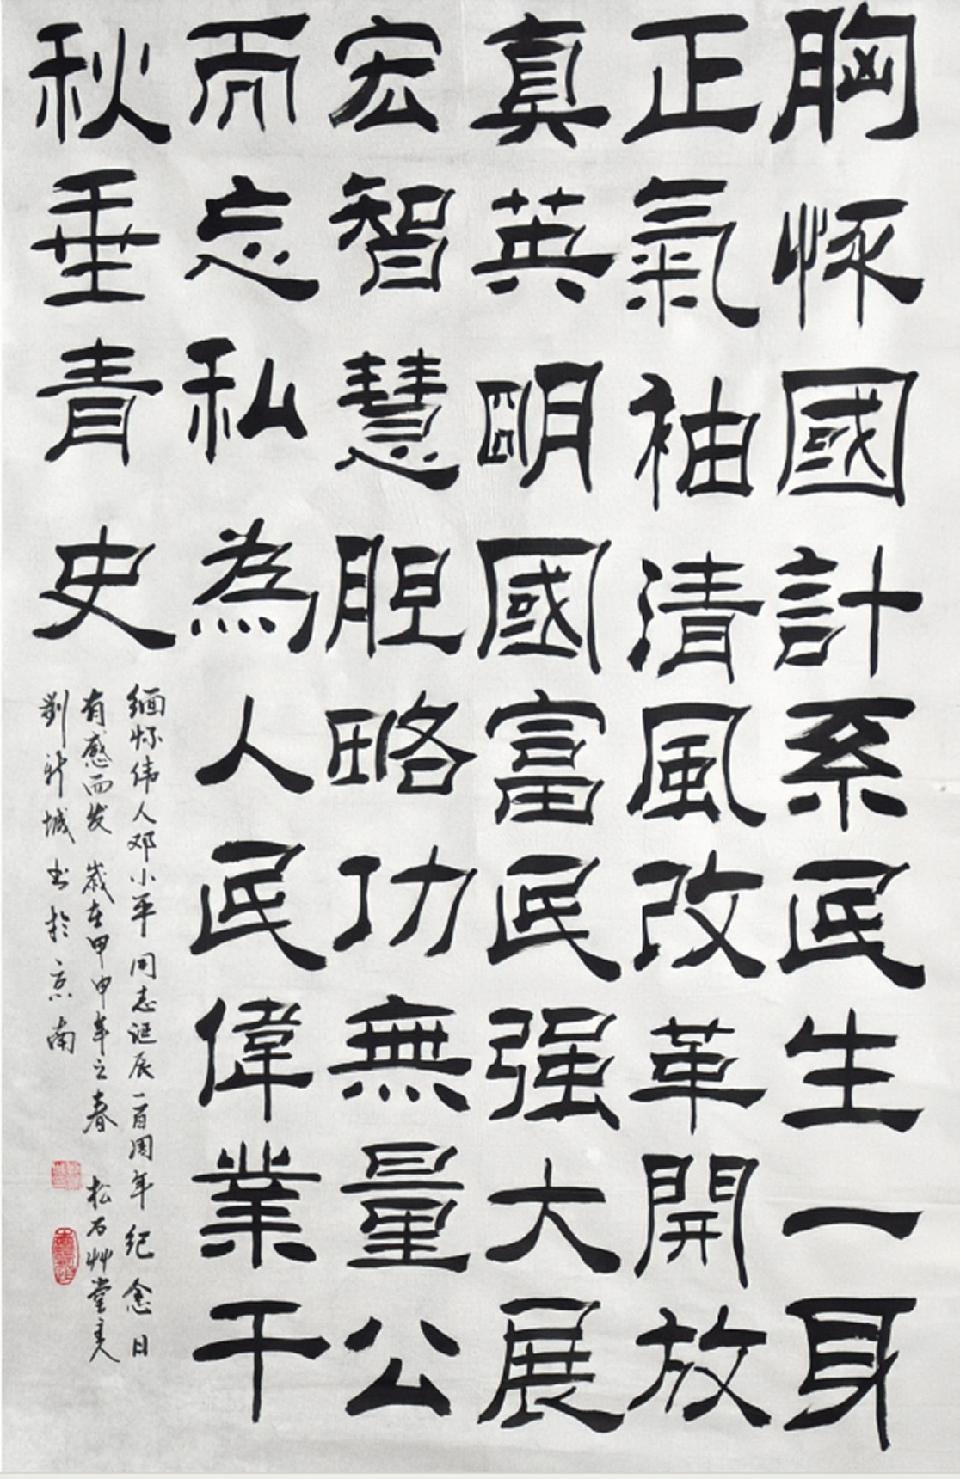 胸怀國計系民生一身
正氣袖清風改革開放
真英明國富民强大展
宏智慧胆略功無量公
而忘私為人民偉業千
秋垂青史
缅怀伟人邓小平同志诞辰一百周年纪念日
有感而发 岁在甲申年之春 松石艸堂主人
劉新城书於京南